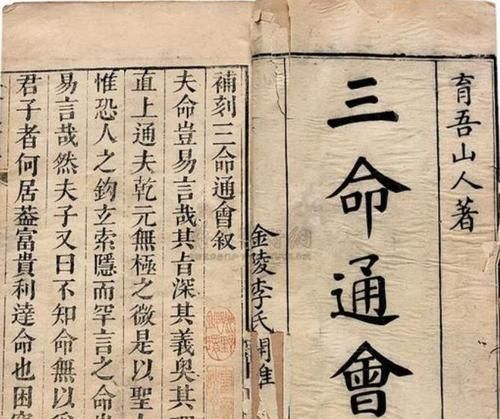 育吾山人著
三命通會
金陵李氏
補刻三命通會叙
夫命豈易言哉其旨深其義奥其理
直上通夫乾元無極之微是以聖
惟恐人之鈎玄索隱而罕言之命
易言哉然夫子又曰不知命無以爲
君子者何居葢富貴利達命也困窮